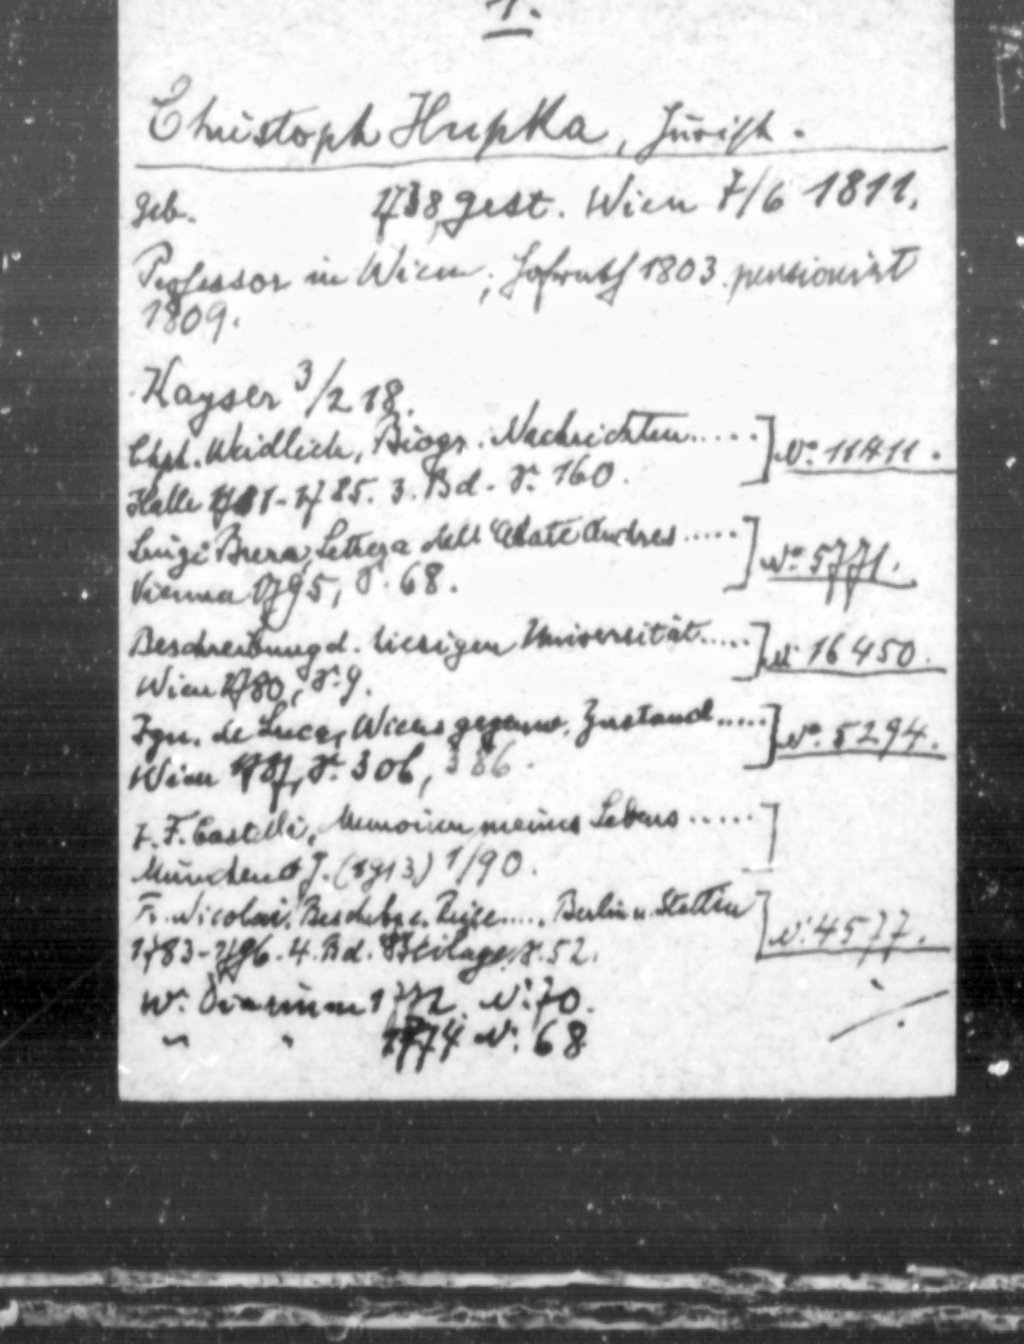 1.
Christoph Hupka, Jurist.
geb. 1738, gest. Wien 7/6 1811.
Professor in Wien; Hofrath 1803. pensionirt
1809.
Kayser 3/2 18.
Chph. Weidlich, Biogr. Nachrichten..... ] No. 11411.
Halle 1781-1785. 3. Bd. S. 160.
Luigi Brera, Lettera dell' Abate Andres ..... ] No. 5771.
Vienna 1795, S. 68.
Beschreibung d. hiesigen Universität..... ] No. 16450.
Wien 1780, S. 9.
Ign. de Luca, Wiens gegenw. Zustand ..... ] No. 5294.
Wien 1787, S. 306, 386.
J. F. Castelli, Memoiren meines Lebens ..... ]
München o J. (1913) 1/90.
Fr. Nicolai, Beschrbg e. Reise ..... Berlin u. Stettin ] N. 4577.
1783-1796. 4. Bd. Beilage, S. 52.
W. Diarium 1772. N. 70.
" " 1774 N. 68